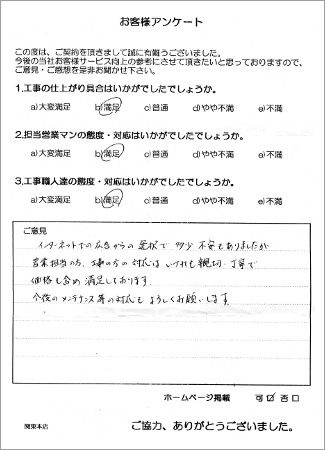 お客様アンケート
この度は、ご契約を頂きまして誠に有難うございました。
今後の当社お客様サービス向上の参考にさせて頂きたいと思っておりますので、
ご意見・ご感想を是非お聞かせ下さい。
1.工事の仕上がり具合はいかがでしたでしょうか。
a)大変満足 b)満足 c)普通 d)やや不満 e)不満
2.担当営業マンの態度・対応はいかがでしたでしょうか。
a)大変満足 b)満足 c)普通 d)やや不満 e)不満
3.工事職人達の態度・対応はいかがでしたでしょうか。
a)大変満足 b)満足 c)普通 d)やや不満 e)不満
ご意見
インターネットでの広告からの で 多少 不安もありましたが
営業担当の方、工事の方の対応は いずれも親切・丁寧で
価格も含め 満足しております。
今後のメンテナンス等の対応も よろしくお願いします。
ホームページ掲載 可 否
関東本店
ご協力、ありがとうございました。